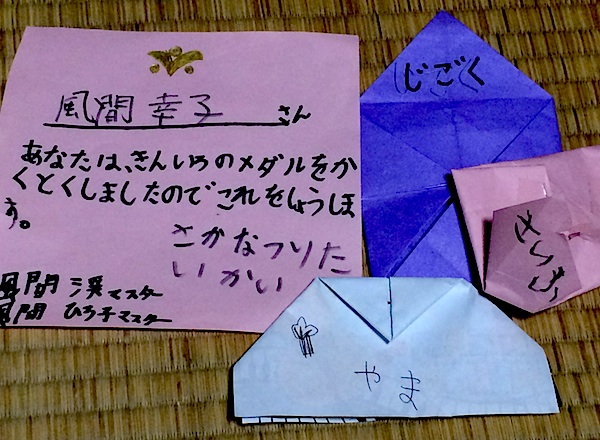 風間 幸子 さん
あなたは、きんいろのメダルをか
くとくしましたのでこれをしょうしま
す。
さかなつりた
いかい
風間 渓マスター
風間 ひろ子マスター
じごく
やま